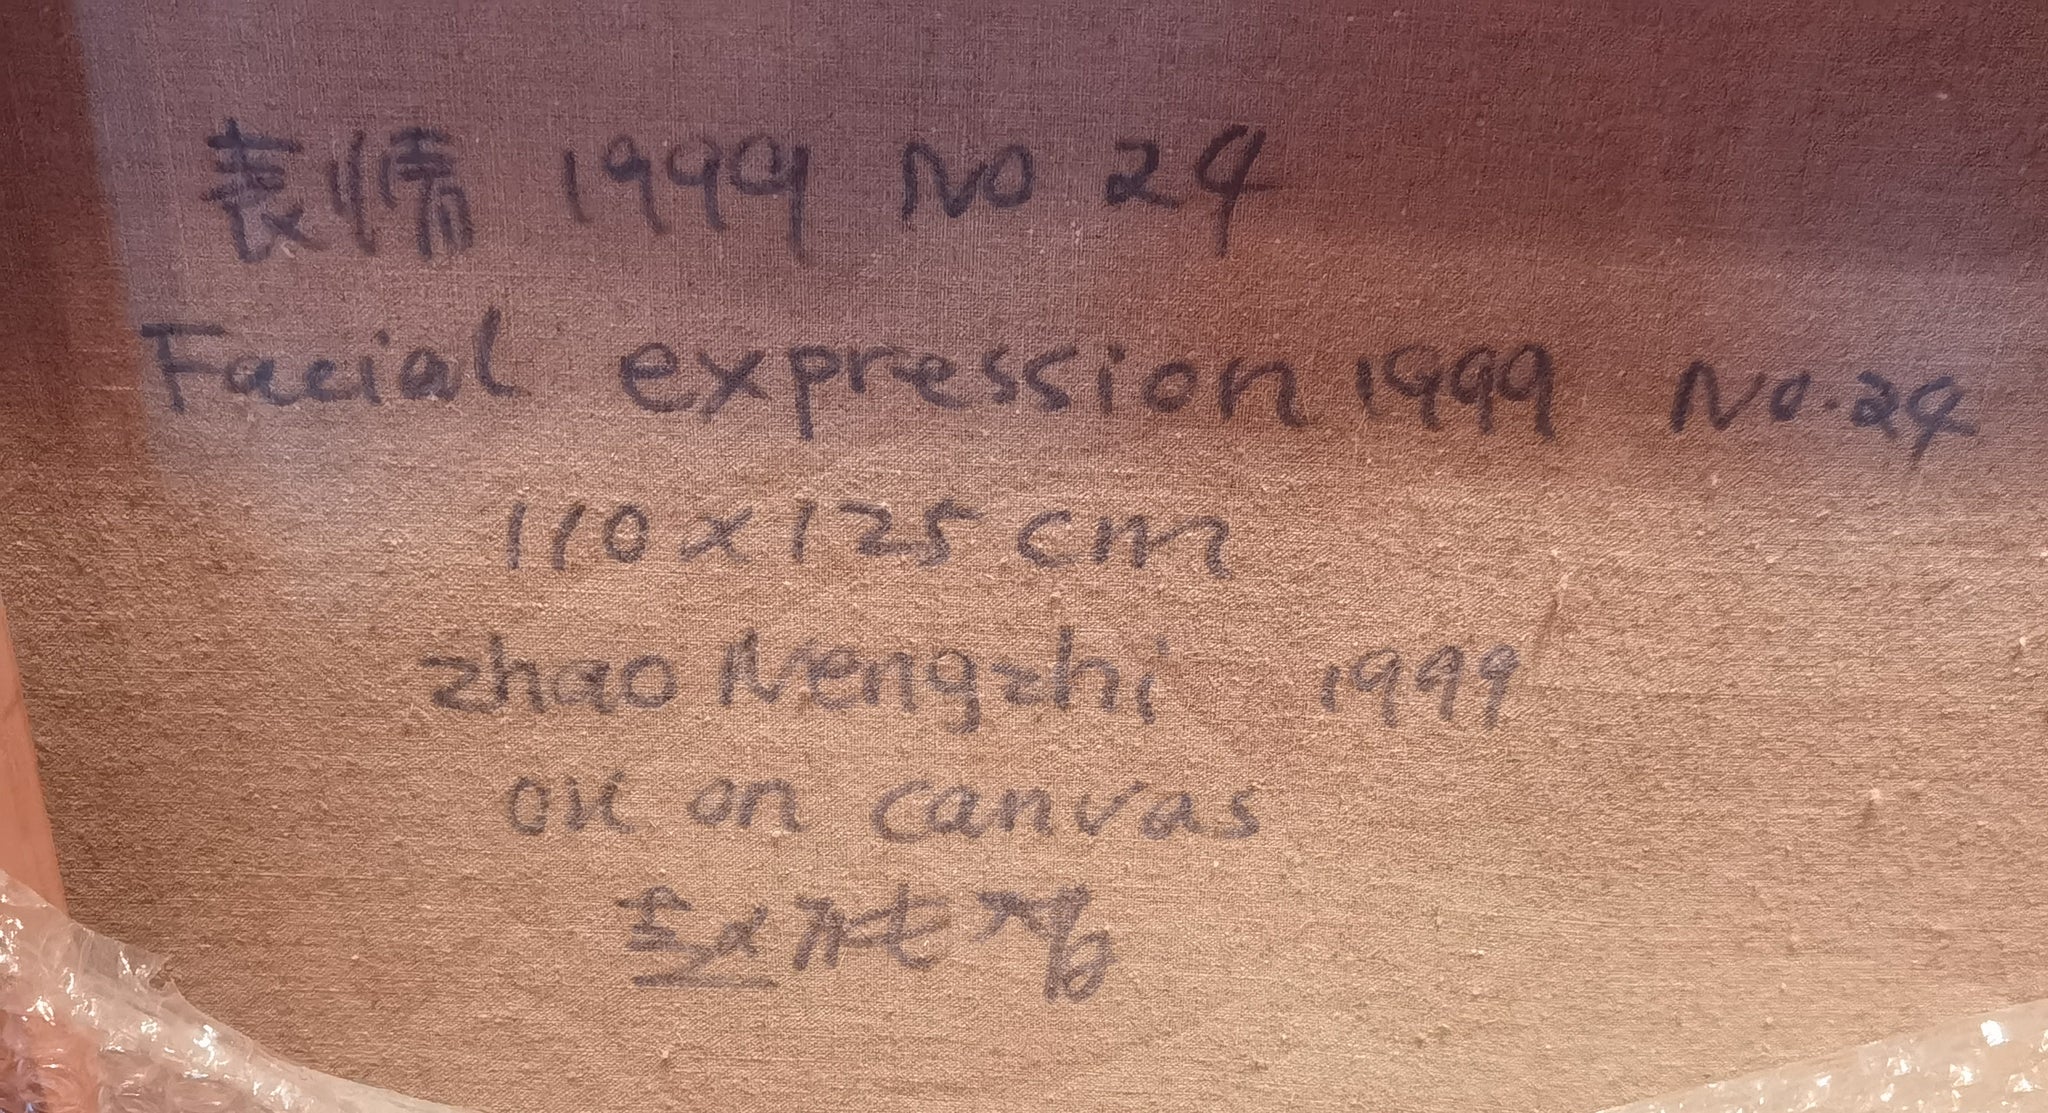 表情 1999 No 24
Facial expression 1999 No.24
110x125cm
zhao Nengzhi 1999
oil on canvas
赵能智